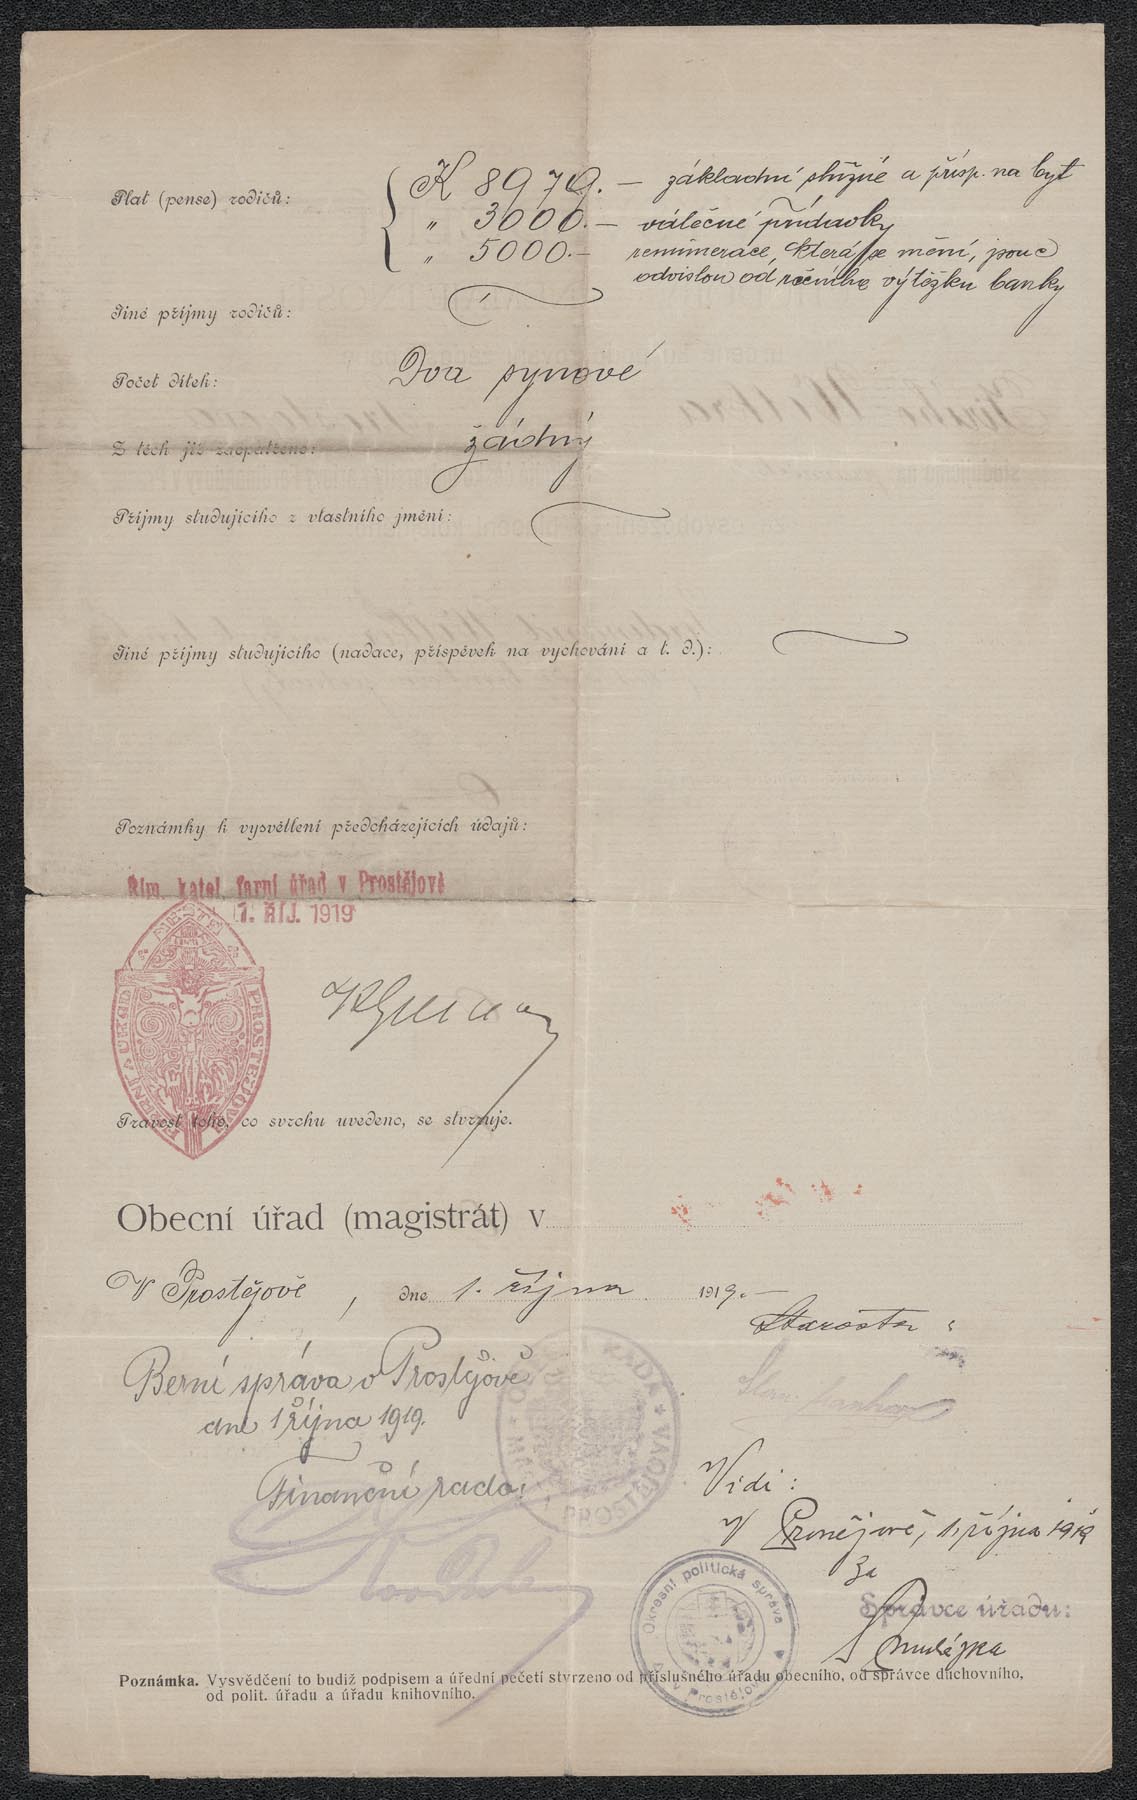 Plat (pense) rodičů:
K 8979.— základní služné a přísp. na byt
„ 3000.— válečné přídavky
„ 5000.— remunerace, která se mění, jsouc
odvislou od ročního výtěžku banky
Jiné příjmy rodičů:
Počet dítek: Dva synové
Z těch již zaopatřeno: žádný
Příjmy studujícího z vlastního jmění:
Jiné příjmy studujícího (nadace, příspěvek na vychování a t. d.):
Poznámky k vysvětlení předcházejících údajů:
Řím. katol. farní úřad v Prostějově
1. ŘÍJ. 1919
Pravost toho, co svrchu uvedeno, se stvrzuje.
Obecní úřad (magistrát) v
V Prostějově, dne 1. října 1919.—
Starosta:
Berní správa v Prostějově
dne 1 října 1919.
Finanční rada:
Vidi:
V Prostějově, 1. října 1919
Za
Správce úřadu:
Okresní politická správa
v Prostějově
Poznámka. Vysvědčení to budiž podpisem a úřední pečetí stvrzeno od příslušného úřadu obecního, od správce duchovního,
od polit. úřadu a úřadu knihovního.